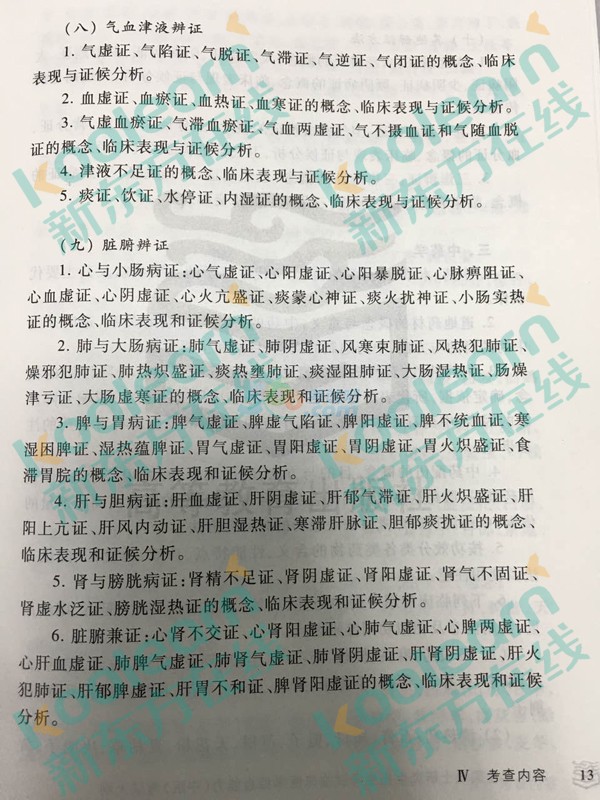 （八）气血津液辨证
1. 气虚证、气陷证、气脱证、气滞证、气逆证、气闭证的概念、临床
表现与证候分析。
2. 血虚证、血瘀证、血热证、血寒证的概念、临床表现与证候分析。
3. 气虚血瘀证、气滞血瘀证、气血两虚证、气不摄血证和气随血脱
证的概念、临床表现与证候分析。
4. 津液不足证的概念、临床表现与证候分析。
5. 痰证、饮证、水停证、内湿证的概念、临床表现与证候分析。
（九）脏腑辨证
1. 心与小肠病证：心气虚证、心阳虚证、心阳暴脱证、心脉痹阻证、
心血虚证、心阴虚证、心火亢盛证、痰蒙心神证、痰火扰神证、小肠实热
证的概念、临床表现和证候分析。
2. 肺与大肠病证：肺气虚证、肺阴虚证、风寒束肺证、风热犯肺证、
燥邪犯肺证、肺热炽盛证、痰热壅肺证、痰湿阻肺证、大肠湿热证、肠燥
津亏证、大肠虚寒证的概念、临床表现和证候分析。
3. 脾与胃病证：脾气虚证、脾虚气陷证、脾阳虚证、脾不统血证、寒
湿困脾证、湿热蕴脾证、胃气虚证、胃阳虚证、胃阴虚证、胃火炽盛证、食
滞胃脘的概念、临床表现和证候分析。
4. 肝与胆病证：肝血虚证、肝阴虚证、肝郁气滞证、肝火炽盛证、肝
阳上亢证、肝风内动证、肝胆湿热证、寒滞肝脉证、胆郁痰扰证的概念、
临床表现和证候分析。
5. 肾与膀胱病证：肾精不足证、肾阴虚证、肾阳虚证、肾气不固证、
肾虚水泛证、膀胱湿热证的概念、临床表现和证候分析。
6. 脏腑兼证：心肾不交证、心肾阳虚证、心肺气虚证、心脾两虚证、
心肝血虚证、肺脾气虚证、肺肾气虚证、肺肾阴虚证、肝肾阴虚证、肝火
犯肺证、肝郁脾虚证、肝胃不和证、脾肾阳虚证的概念、临床表现和证候
分析。
Ⅳ 考查内容 13
koolearn
新东方在线
koolearn
新东方在线
koolearn
新东方在线
koolearn
新东方在线
koolearn
新东方在线
koolearn
新东方在线